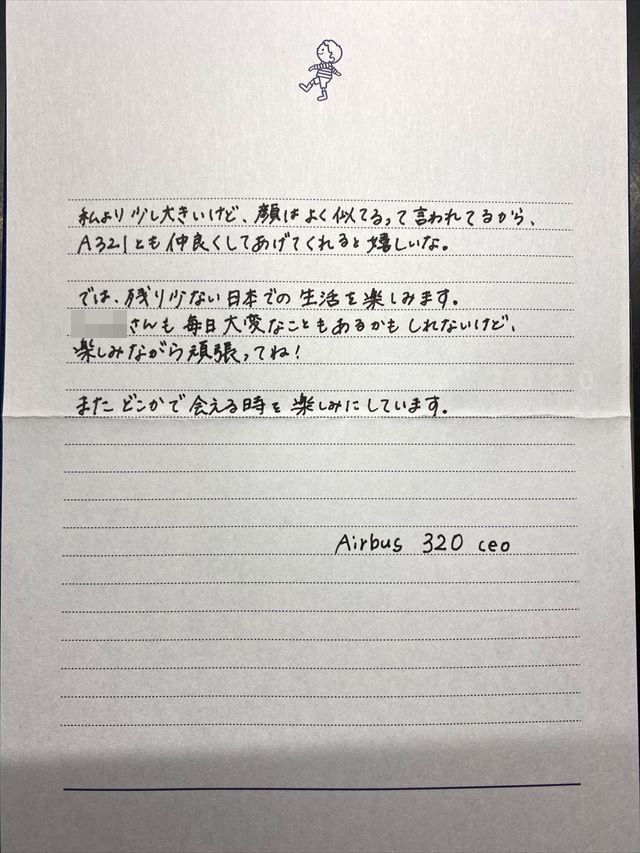 私より少し大きいけど、顔はよく似てるって言われてるから、
A321とも仲良くしてあげてくれると嬉しいな。
では、残り少ない日本での生活を楽しみます。
さんも毎日大変なこともあるかもしれないけど、
楽しみながら頑張ってね!
またどこかで会える時を楽しみにしています。
Airbus 320 ceo